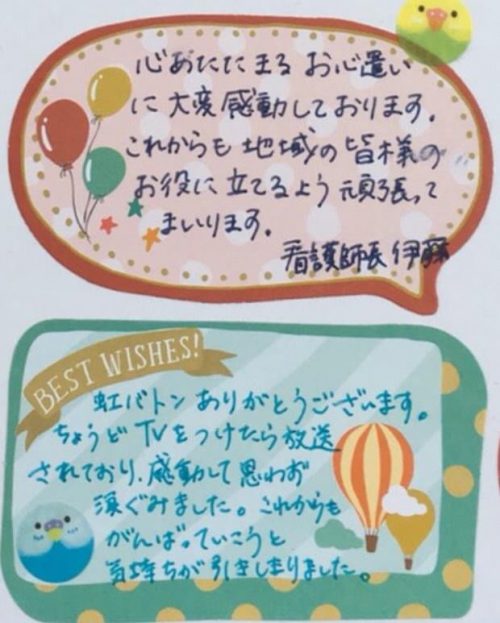 心あたたまるお心遣い
に大変感動しております。
これからも地域の皆様の
お役に立てるよう頑張って
まいります。
看護師長 伊藤
BEST WISHES!
虹バトンありがとうございます。
ちょうどTVをつけたら放送
されており、感動して思わず
涙ぐみました。これからも
がんばっていこうと
気持ちが引きしまりました。